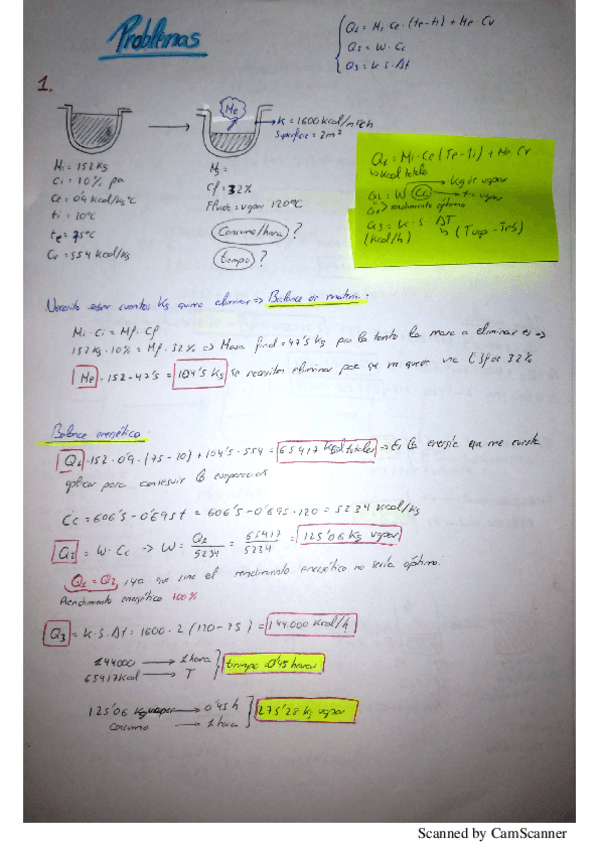 Problemas
Q1 = Mi·Ce·(Te-ti) + Me·Cv
Q2 = W·Cc
Q3 = K·S·Δt
1.
Me
K = 1600 kcal/m²ºCh
Superficie = 2m²
Mi = 152 Kg
Ci = 10% pa
Ce = 0'9 kcal/kgºC
ti = 10ºC
te = 75ºC
Cv = 554 kcal/kg
Cf = 32%
Fluido = vapor 120ºC
Consumo/hora ?
tiempo ?
Q1 = Mi·Ce(Te-Ti) + Me·Cv
Kcal totales
Kg de vapor
Q2 = W Cc
t = vapor
rendimiento óptimo
Q3 = K·S ΔT
(Kcal/h)
(Tvap - Teb)
Necesito saber cuantos Kg quiero eliminar => Balance de materia:
Mi·Ci = Mf·Cf
152 Kg·10% = Mf·32% => Masa final = 47'5 Kg por lo tanto la masa a eliminar es =>
Me = 152 - 47'5 = 104'5 Kg se necesitan eliminar para que me quede una 32%
Balance energético:
Q1 = 152·0'9·(75-10) + 104'5·554 = 65417 kcal totales => Es la energía que me cuesta
aplicar para conseguir la evaporación
Cc = 606'5 - 0'695t = 606'5 - 0'695·120 = 523'1 kcal/kg
Q2 = W·Cc -> W = Q2/5231 = 65417/5231 = 125'06 Kg vapor
Q1 = Q2, ya que sino el rendimiento energético no sería óptimo.
Rendimiento energético 100%
Q3 = K·S·Δt = 1600·2(120-75) = 144.000 Kcal/h
144000 -> 1 hora
tiempo = 0'45 horas
65417 kcal -> T
125'06 Kg vapor -> 0'45 h
275'28 Kg vapor
Consumo -> 1 hora
Scanned by CamScanner